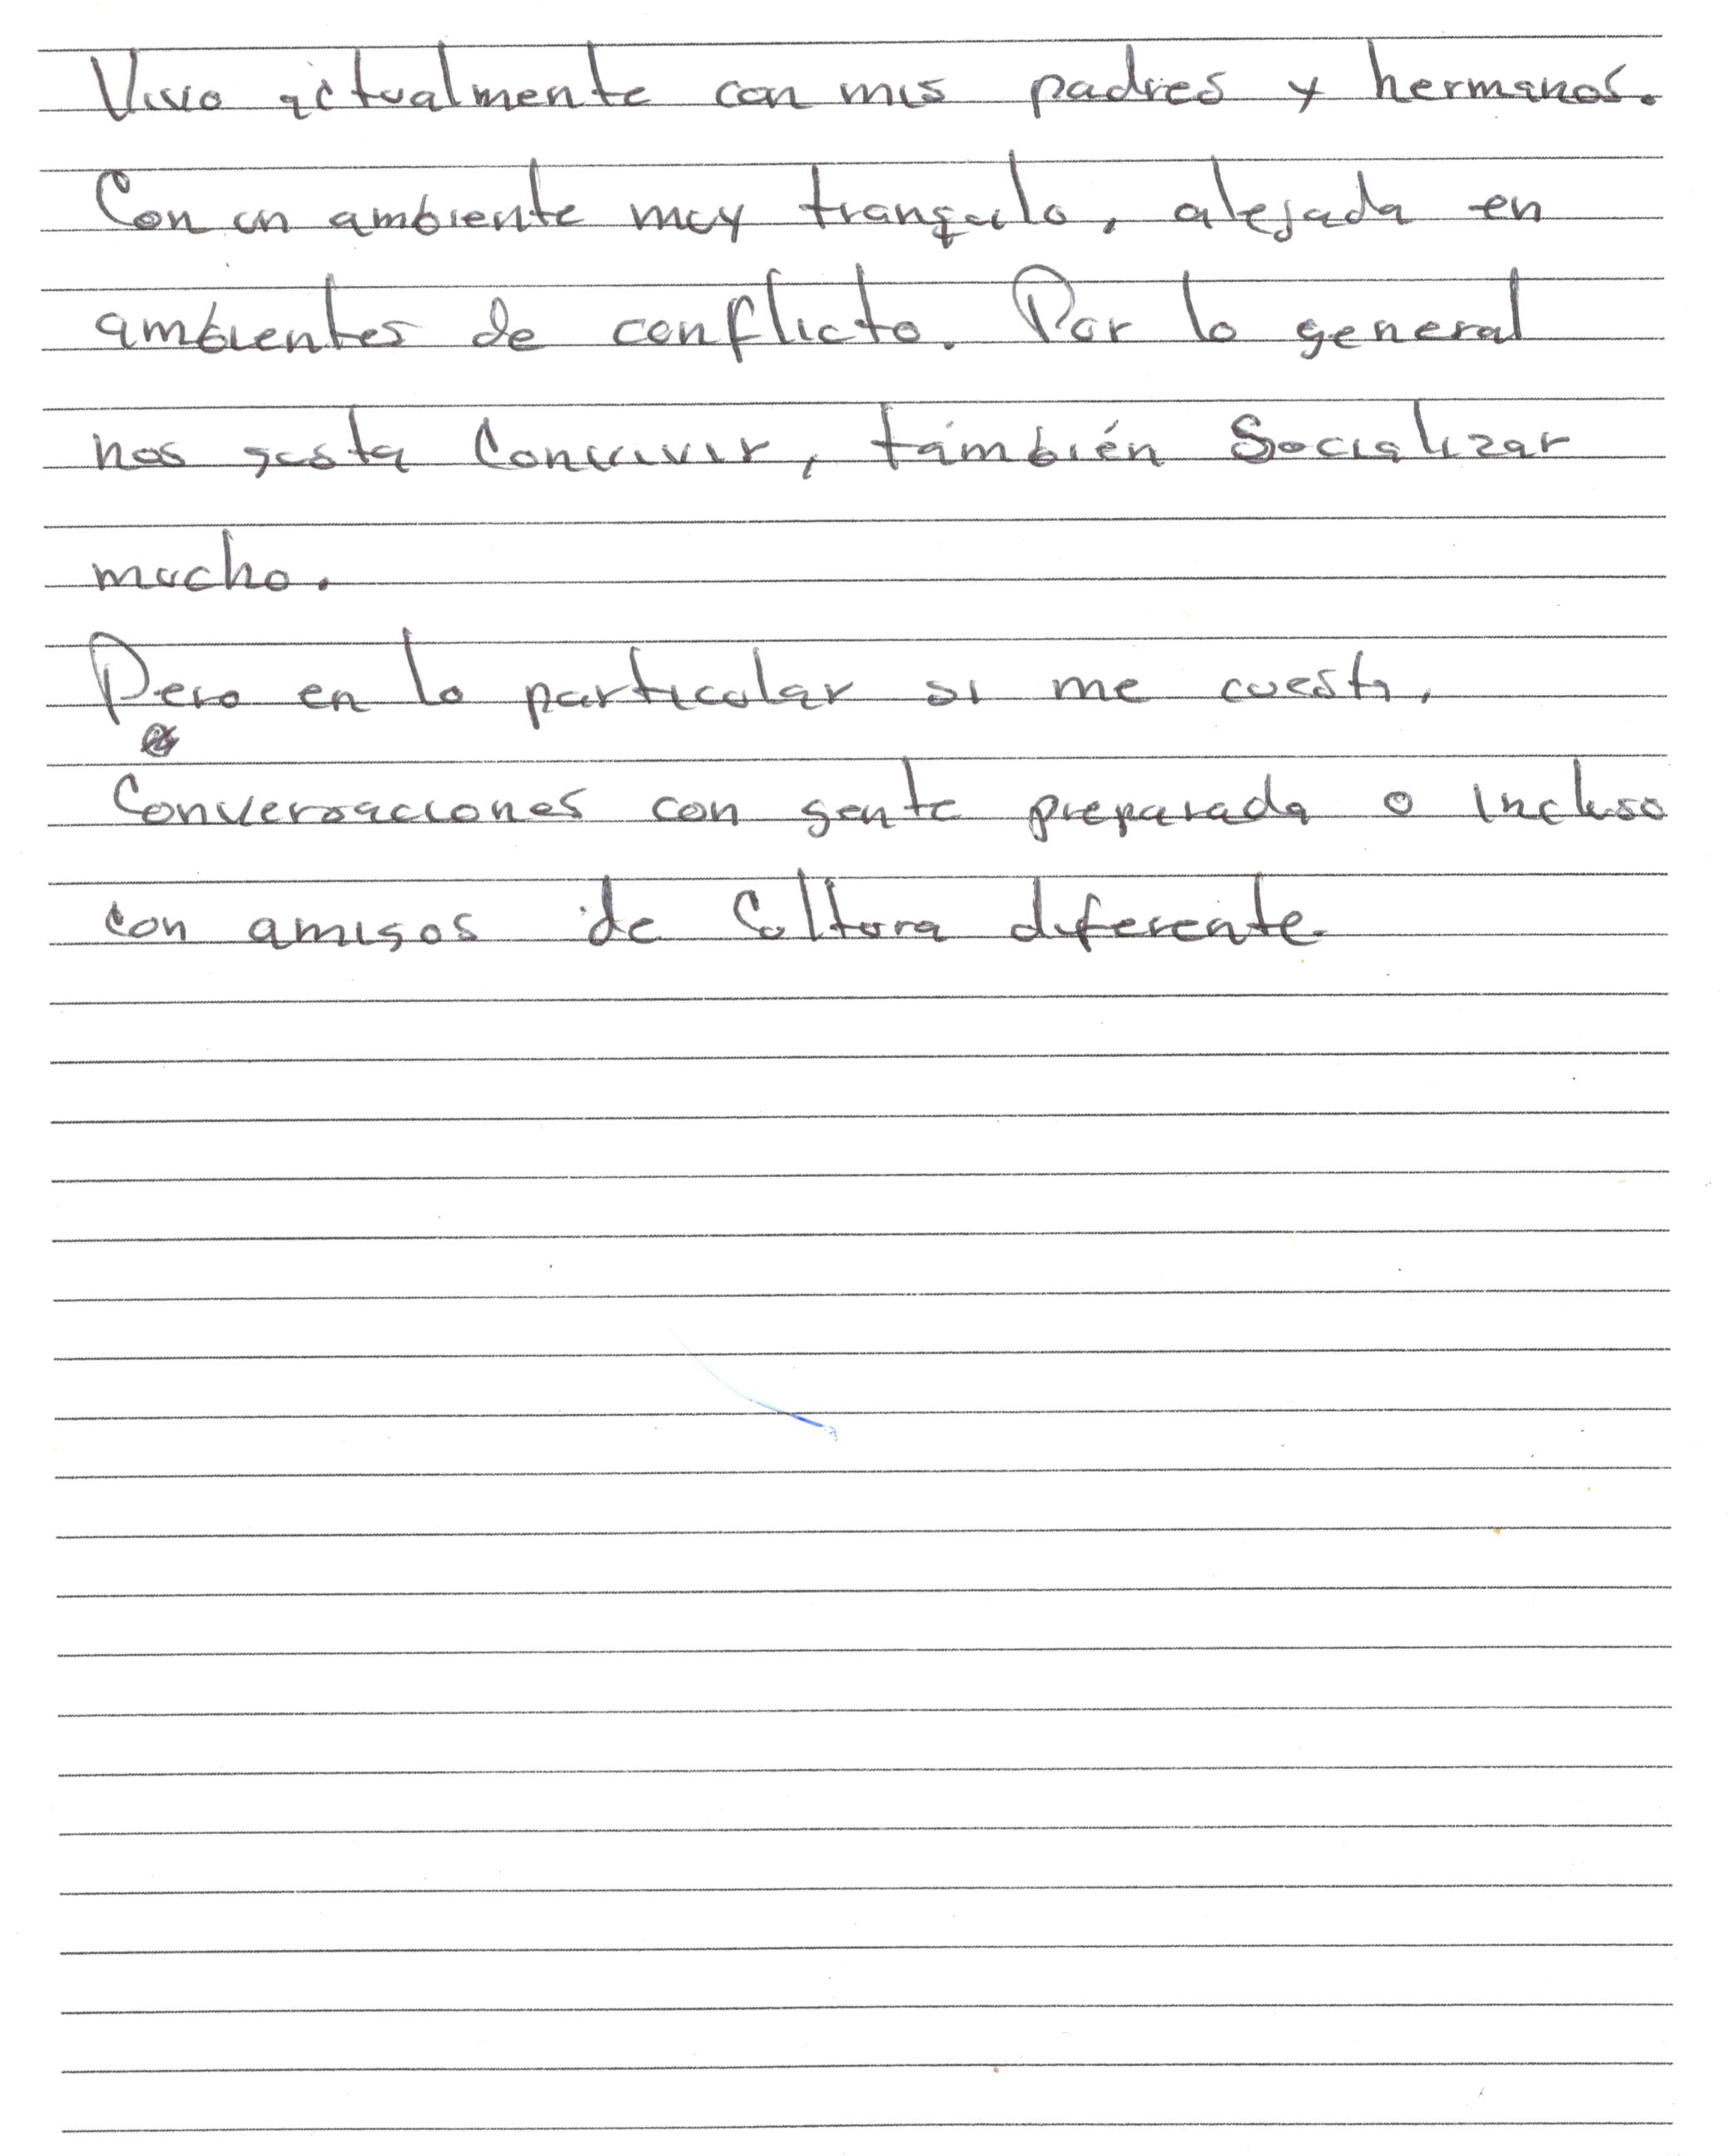 Vivo actualmente con mis padres y hermanos.
Con un ambiente muy tranquilo, alejada en
ambientes de conflicto. Por lo general
nos gusta Convivir, también Socializar
mucho.
Pero en lo particular si me cuesta,
Conversaciones con gente preparada o incluso
con amigos de Cultura diferente.